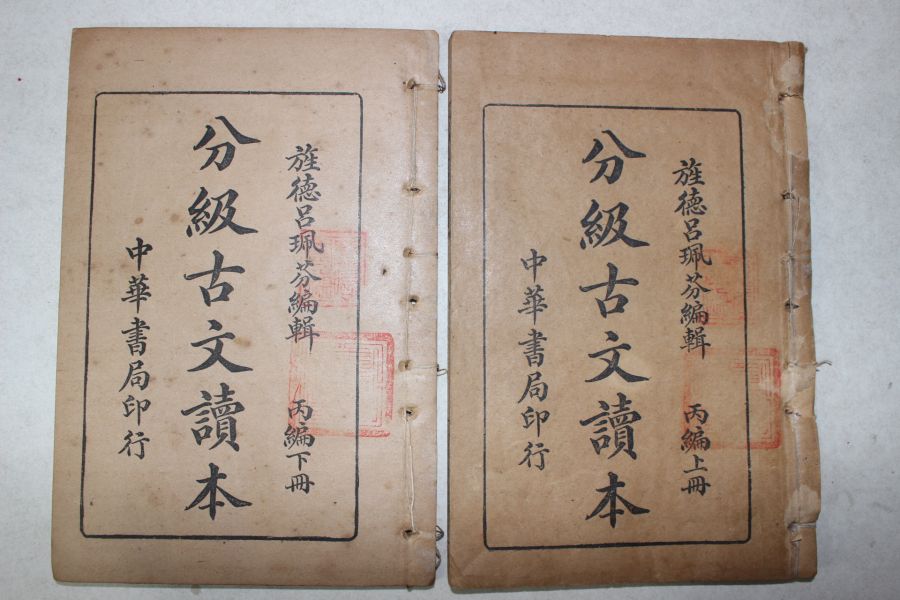 旌德呂珮芬編輯 丙編上冊
分級古文讀本
中華書局印行
旌德呂珮芬編輯 丙編下冊
分級古文讀本
中華書局印行